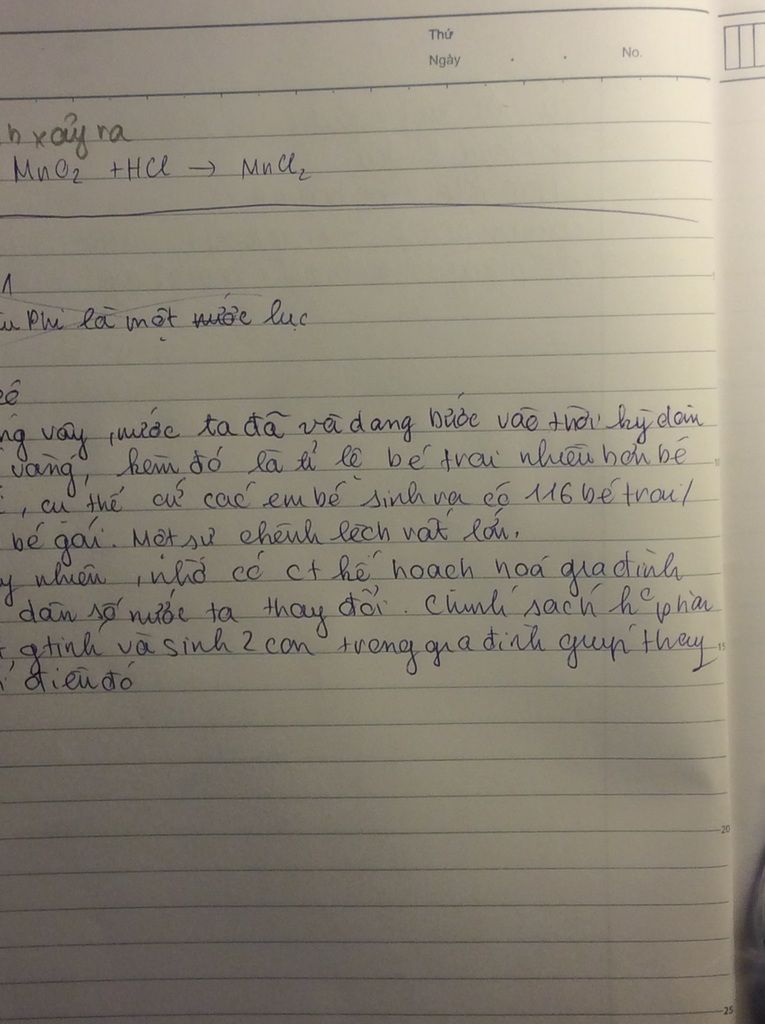 Thứ
Ngày . . No.
h xảy ra
MnO2 + HCl → MnCl2
1
u Phi là một nước lục
ng vậy, nước ta đã và đang bước vào thời kỳ dân
vàng, kèm đó là tỉ lệ bé trai nhiều hơn bé
, cụ thể cứ các em bé sinh ra có 116 bé trai/
bé gái. Một sự chênh lệch rất lớn.
y nhiên, nhờ có ct kế hoạch hoá gia đình
dân số nước ta thay đổi. Chính sách hc phân
gtính và sinh 2 con trong gia đình giúp thay
điều đó
15
20
25